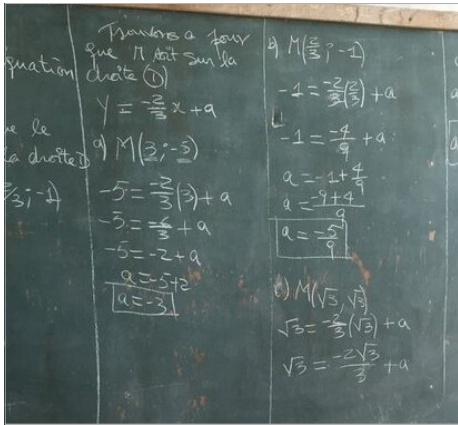 quation
le
la droite D
/3; -1)
Trouvons a pour
que M soit sur la
droite ①
y = -2/3 x + a
a) M(3; -5)
-5 = -2/3 (3) + a
-5 = -6/3 + a
-5 = -2 + a
a = -5+2
a = -3
b) M(2/3; -1)
-1 = -2/3 (2/3) + a
-1 = -4/9 + a
a = -1 + 4/9
a = -9+4/9
a = -5/9
c) M(√3, √3)
√3 = -2/3 (√3) + a
√3 = -2√3/3 + a